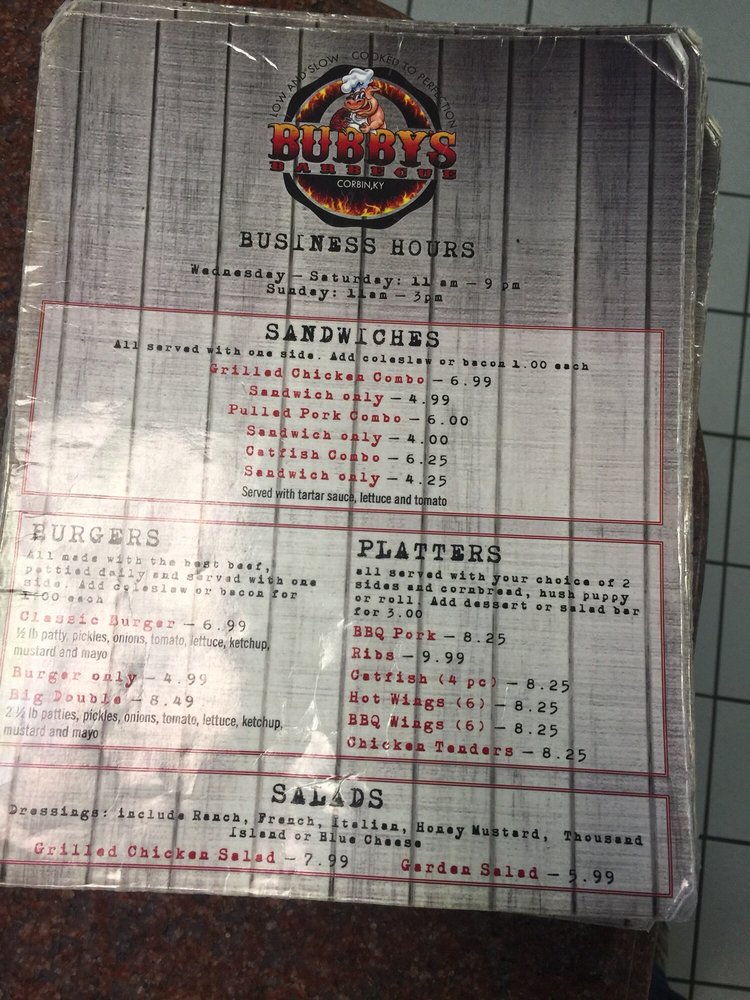 LOW AND SLOW - COOKED TO PERFECTION
BUBBYS
BARBECUE
CORBIN,KY
BUSINESS HOURS
Wednesday — Saturday: 11 am — 9 pm
Sunday: 11am — 3pm
SANDWICHES
All served with one side. Add coleslaw or bacon 1.00 each
Grilled Chicken Combo — 6.99
Sandwich only — 4.99
Pulled Pork Combo — 6.00
Sandwich only — 4.00
Catfish Combo — 6.25
Sandwich only — 4.25
Served with tartar sauce, lettuce and tomato
BURGERS
All made with the best beef,
pattied daily and served with one
side. Add coleslaw or bacon for
1.00 each
Classic Burger — 6.99
½ lb patty, pickles, onions, tomato, lettuce, ketchup,
mustard and mayo
Burger only — 4.99
Big Double — 8.49
2 ½ lb patties, pickles, onions, tomato, lettuce, ketchup,
mustard and mayo
PLATTERS
all served with your choice of 2
sides and cornbread, hush puppy
or roll. Add dessert or salad bar
for 3.00
BBQ Pork — 8.25
Ribs — 9.99
Catfish (4 pc) — 8.25
Hot Wings (6) — 8.25
BBQ Wings (6) — 8.25
Chicken Tenders — 8.25
SALADS
Dressings: include Ranch, French, Italian, Honey Mustard, Thousand
Island or Blue Cheese
Grilled Chicken Salad — 7.99
Garden Salad — 5.99